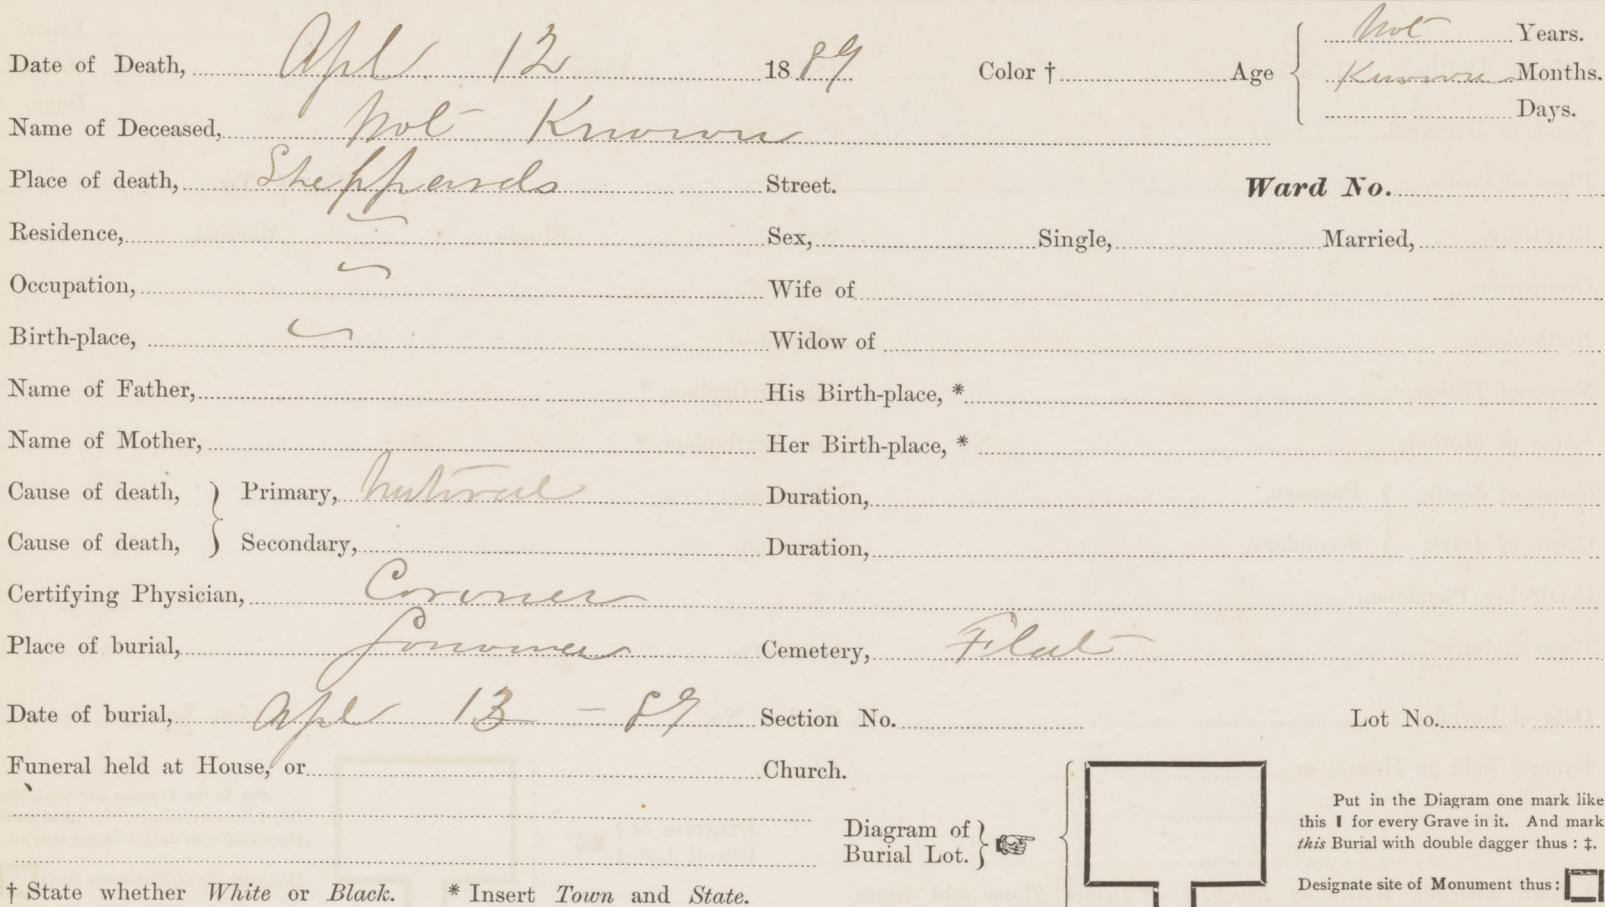 Date of Death, Apl 12 1889 Color † Age Not Years.
Known Months.
Days.
Name of Deceased, Not Known
Place of death, Sheppards Street. Ward No.
Residence, Sex, Single, Married,
Occupation, Wife of
Birth-place, Widow of
Name of Father, His Birth-place, *
Name of Mother, Her Birth-place, *
Cause of death, } Primary, Natural Duration,
Cause of death, } Secondary, Duration,
Certifying Physician, Coroner
Place of burial, Sonoma Cemetery, Flat
Date of burial, Apl 13 - 89 Section No. Lot No.
Funeral held at House, or Church.
Diagram of
Burial Lot. }
Put in the Diagram one mark like
this I for every Grave in it. And mark
this Burial with double dagger thus : ‡.
Designate site of Monument thus :
† State whether White or Black. * Insert Town and State.